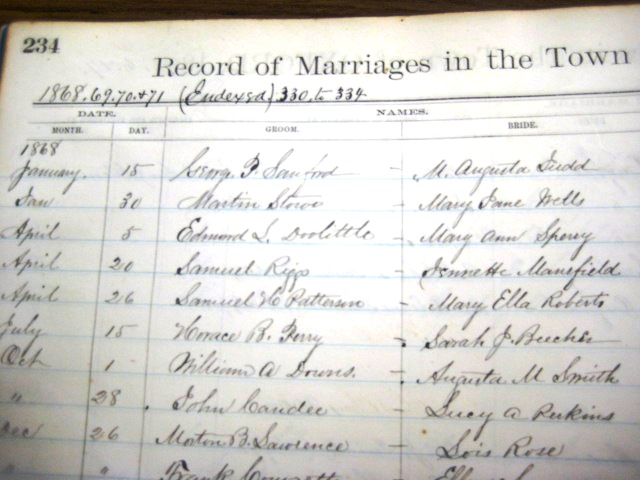 234
Record of Marriages in the Town
1868, 69, 70, & 71 (Endexed) 330, to 334
DATE. NAMES.
MONTH. DAY. GROOM. BRIDE.
1868
January. 15 George P. Sanford - M. Augusta Judd
Jan 30 Martin Stowe - Mary Jane Wells
April 5 Edmond L. Doolittle - Mary Ann Sperey
April 20 Samuel Riggs - Jennette Mansfield
April 26 Samuel H Patterson - Mary Ella Roberts
July 15 Horace B. Perry - Sarah J. Beecher
Oct 1 William A Downs. - Augusta M Smith
" 28 John Candee - Lucy A Perkins
Dec 26 Morton B. Lawrence - Lois Rose
" " Frank